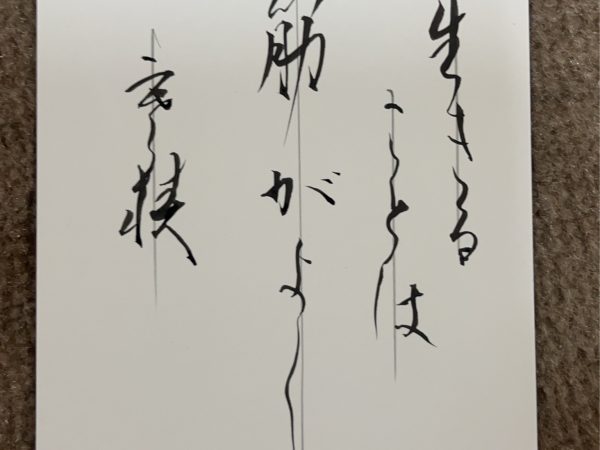 生きる
ことは
筋がよし
寒椿